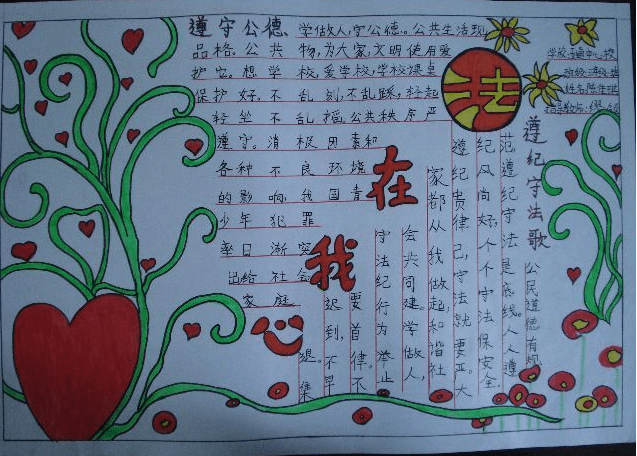 遵守公德、学做人,守公德。公共生活现
品格。公共物,为大家,文明使用爱
护它。想学校,爱学校,学校课桌
保护好。不乱刻,不乱踩,轻起
轻坐不乱摇。公共秩序严
遵守。消极因素和
各种不良环境
的影响,我国青
少年犯罪
率日渐突
出给社会
家庭
法
在
我
心
遵纪守法歌
公民道德有规
范遵纪守法是底线。人人遵
纪风尚好,个个守法保安全。
遵纪贵律己,守法就要正。大
家都从我做起,和谐社
会共同建。学做人,
守法纪行为举止
要首律。不
迟到,不早
退。集